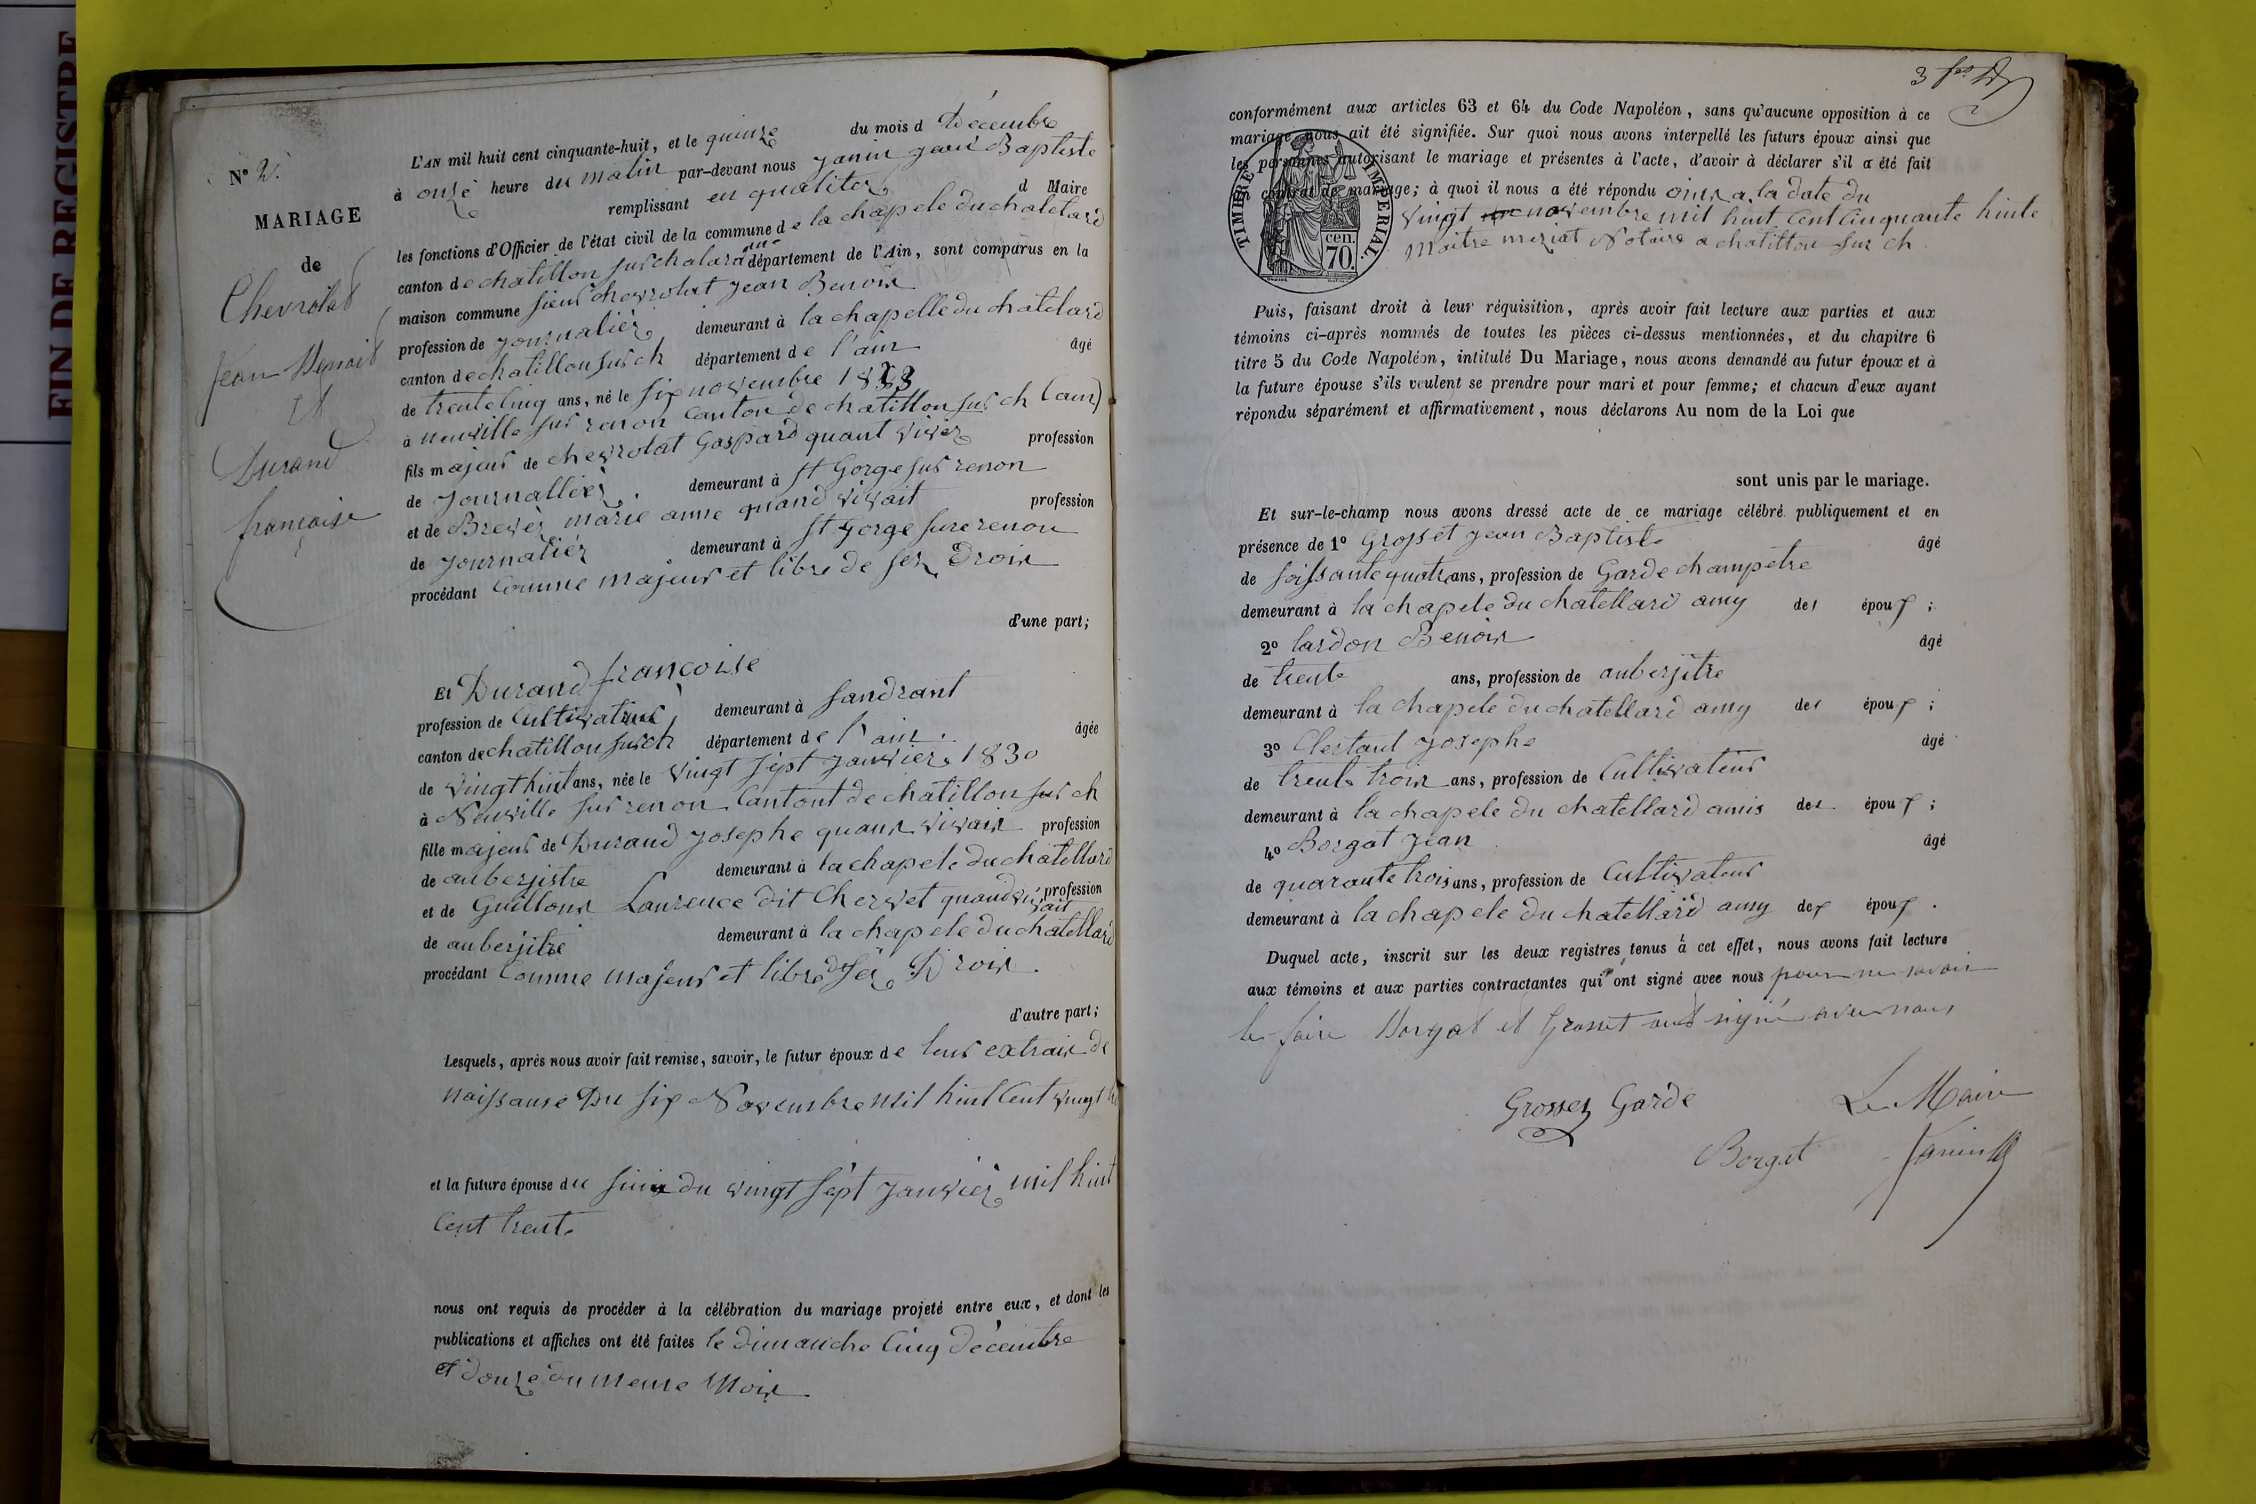 FIN DE REGISTRE
N° 2.
MARIAGE
de
Chevrolat
Jean Benoit
et
Durand
françoise
L'AN mil huit cent cinquante-huit, et le quinze du mois d Décembre
à onze heure du matin par-devant nous Janin Jean Baptiste
remplissant en qualiter d Maire
les fonctions d'Officier de l'état civil de la commune de la chapele du chatelard
canton de chatillon sur chalaronne département de l'Ain, sont comparus en la
maison commune sieur chevrolat Jean Benoix
profession de journalier demeurant à la chapelle du chatelard
canton de chatillon sur ch département de l'ain âgé
de trente cinq ans, né le six novembre 1823
à neuville sur renon canton de chatillon sur ch (ain)
fils majeur de chevrolat Gaspard quant vivez profession
de journallier. demeurant à st Gorge sur renon
et de Brevèr marie anne quand vivait profession
de journaliér demeurant à st gorge sure renon
procédant comme majeur et libre de ses Droix
d'une part;
Et Durand françoise
profession de Cultivatrice demeurant à sandrant
canton de chatillon sur ch département de l'ain. âgée
de vingt huit ans, née le vingt sept janvier 1830
à Neuville sur renon Cantont de chatillon sur ch
fille majeur de Durand Josephe quant vivair profession
de auberjistre demeurant à la chapele du chatellard
et de Guillour Laurence dit Chervet quand vivait profession
de auberjitre demeurant à la chapele du chatellard
procédant Comme majeur et libre de ses Droix.
d'autre part;
Lesquels, après nous avoir fait remise, savoir, le futur époux de leur extrair de
naissanse Du six Novembre mil huit Cent vingt
et la future épouse du siein du vingt sept Janvier mil huit
Cent trente
nous ont requis de procéder à la célébration du mariage projeté entre eux, et dont les
publications et affiches ont été faites le dimanche Cinq décembre
et douze du meme Moix
3
conformément aux articles 63 et 64 du Code Napoléon, sans qu'aucune opposition à ce
mariage nous ait été signifiée. Sur quoi nous avons interpellé les futurs époux ainsi que
les personnes autorisant le mariage et présentes à l'acte, d'avoir à déclarer s'il a été fait
contrat de mariage; à quoi il nous a été répondu ouix a la date du
vingt novembre mil huit Cent Cinquante huite
Maitre meziat Notaire a chatillon sur ch
TIMBRE IMPÉRIAL
70. cen.
Puis, faisant droit à leur réquisition, après avoir fait lecture aux parties et aux
témoins ci-après nommés de toutes les pièces ci-dessus mentionnées, et du chapitre 6
titre 5 du Code Napoléon, intitulé Du Mariage, nous avons demandé au futur époux et à
la future épouse s'ils veulent se prendre pour mari et pour femme; et chacun d'eux ayant
répondu séparément et affirmativement, nous déclarons Au nom de la Loi que
sont unis par le mariage.
Et sur-le-champ nous avons dressé acte de ce mariage célébré publiquement et en
présence de 1° Grosset Jean Baptiste âgé
de soissante quatre ans, profession de Garde champetre
demeurant à la chapele du chatellard amy des époux ;
2° lardon Benoix âgé
de trente ans, profession de auberjitre
demeurant à la chapele du chatellard amy des époux ;
3° Clertant Josephe âgé
de trente troix ans, profession de Cultivateur
demeurant à la chapele du chatellard amis des époux ;
4° Borgat Jean âgé
de quarante trois ans, profession de Cultivateur
demeurant à la chapele du chatellard amy des époux .
Duquel acte, inscrit sur les deux registres tenus à cet effet, nous avons fait lecture
aux témoins et aux parties contractantes qui ont signé avec nous pour ne savoir
le faire Borgat et Grosset ont signé avec nous
Grosset Garde
Le Maire
Borgat
Janin